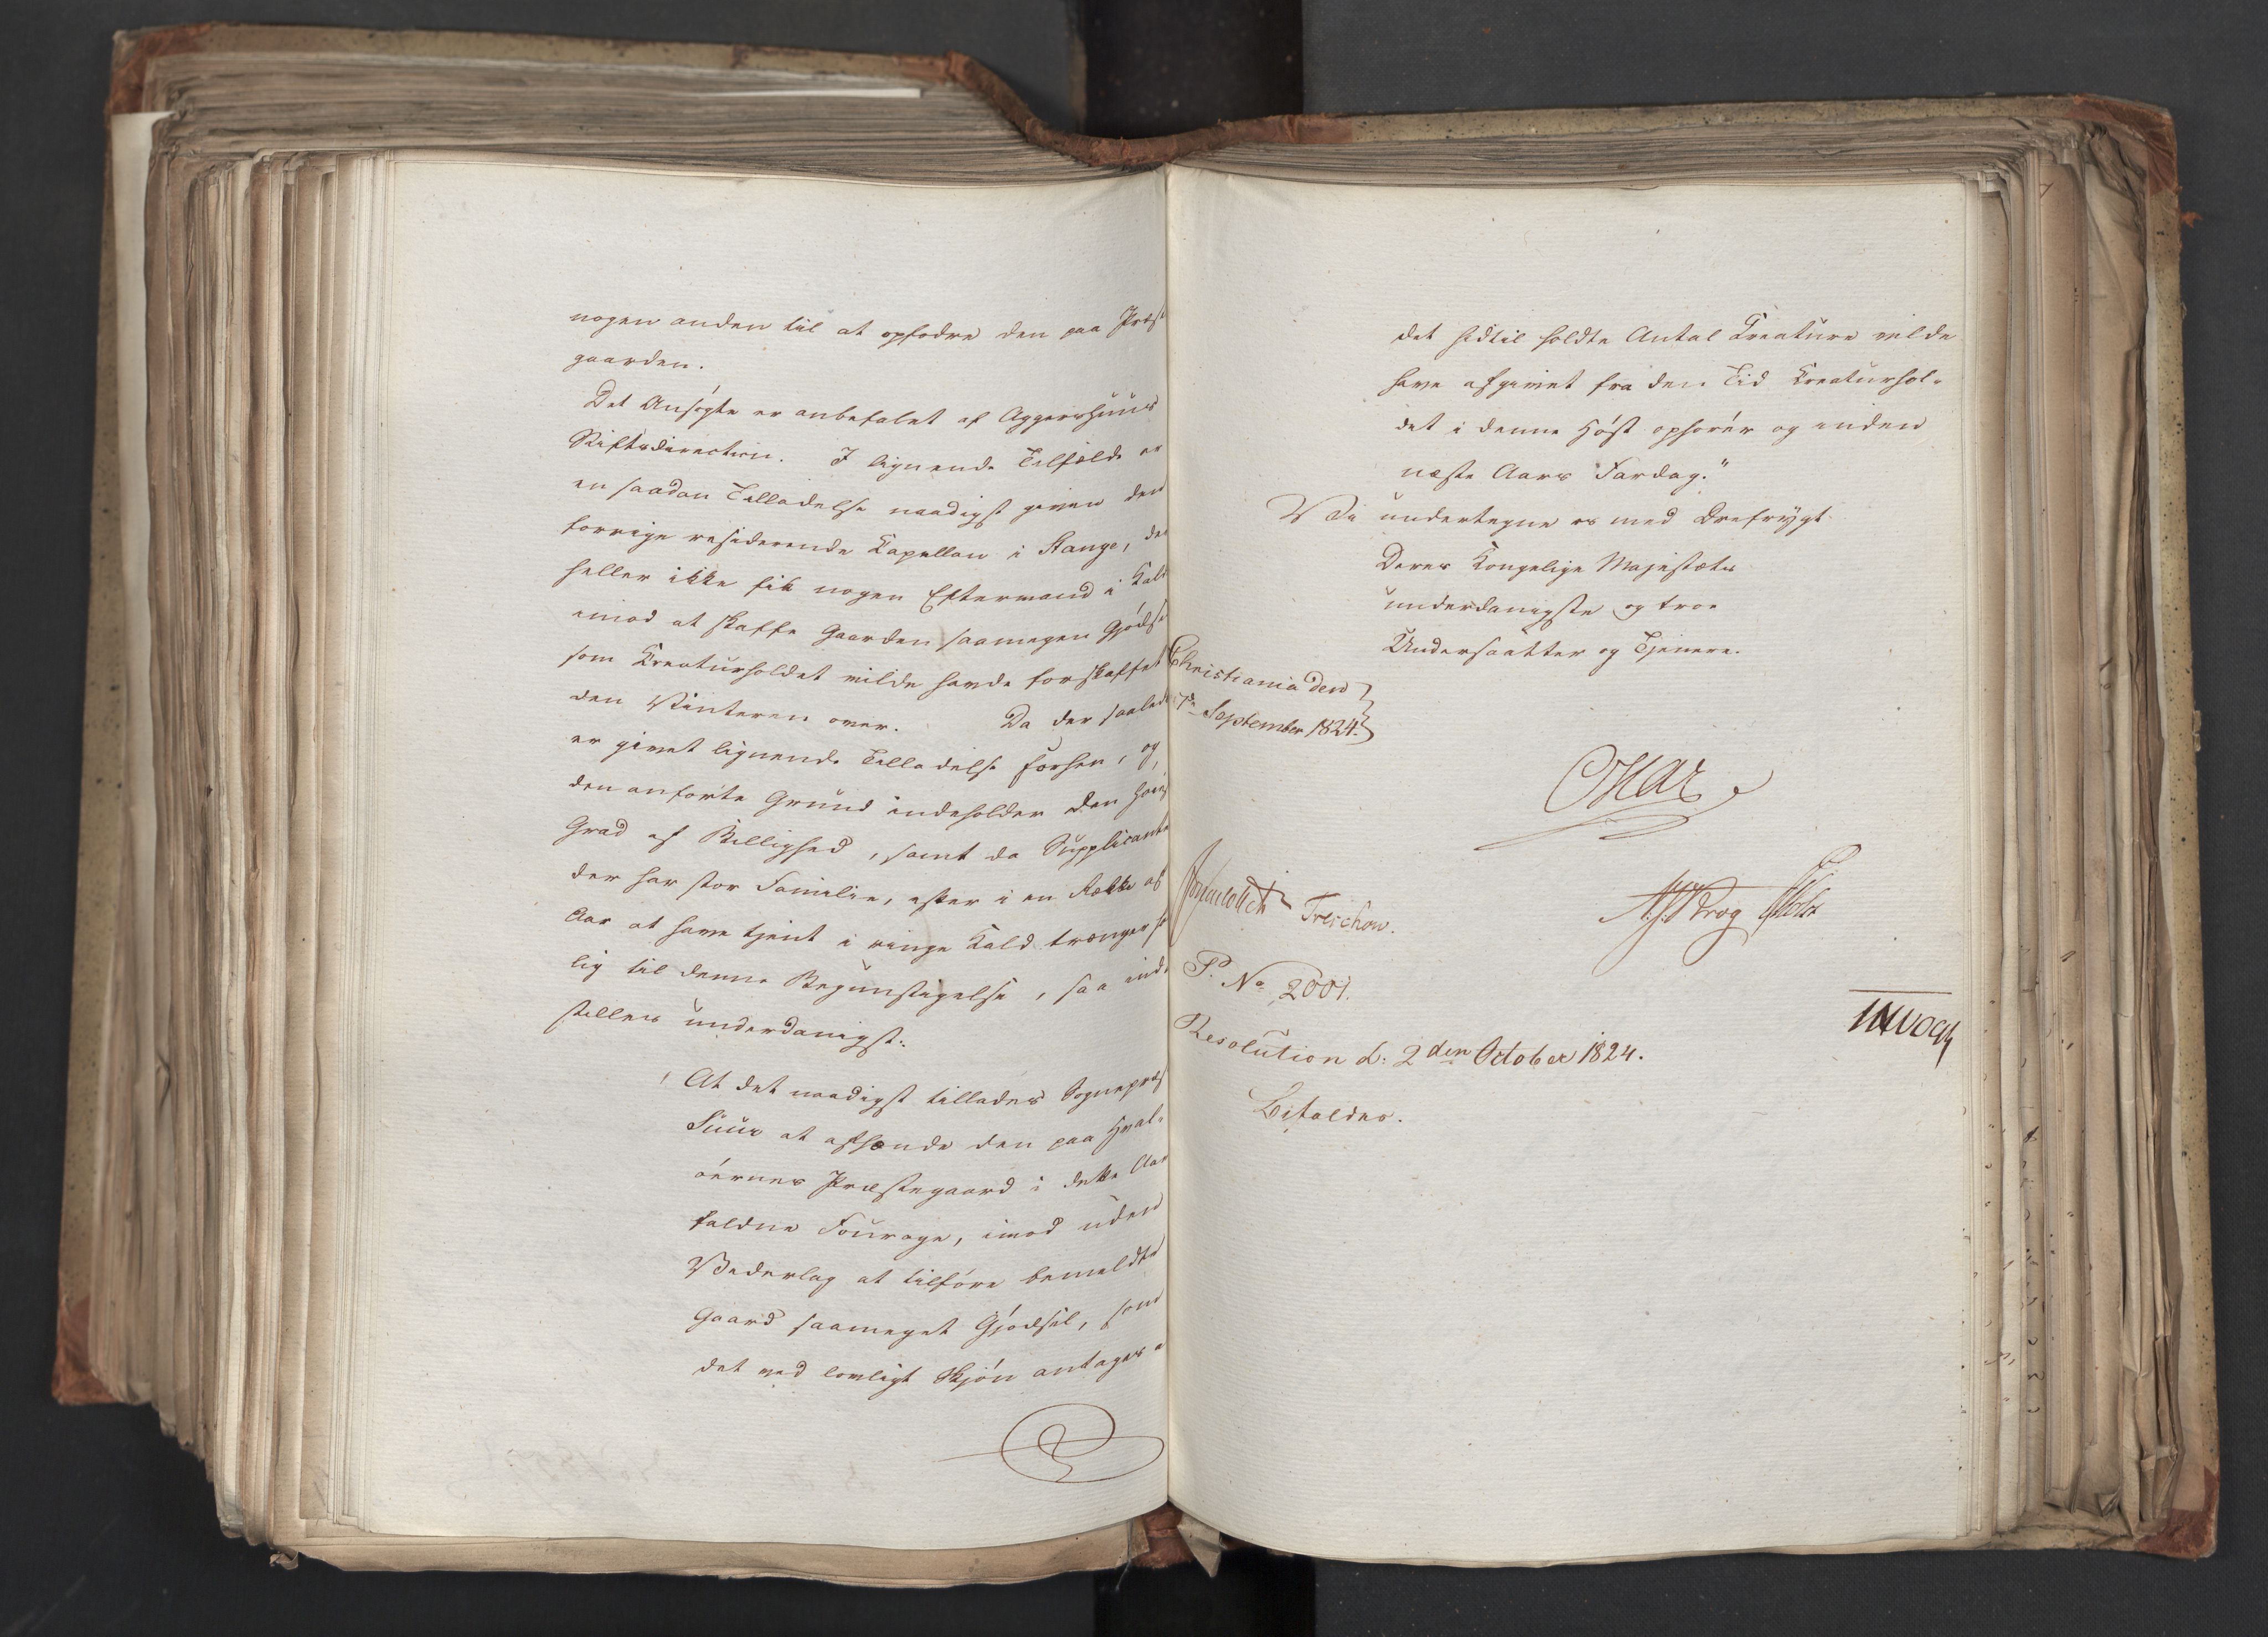 nogen anden til at opfodre den paa Præst
gaarden.
Det Ansøgte er anbefalet af Aggershuus
Stiftsdirection. I lignende Tilfælde er
en saadan Tilladelse naadigst given den
forrige residerende Kapellan i Stange, der
heller ikke fik nogen Eftermand i Kald
imod at skaffe Gaarden saamegen Gjødsel
som Kreaturholdet vilde havde forskaffet
den Vinteren over. Da der saaled
er givet lignende Tilladelse forhen, og
den anførte Grund indeholder den høie
Grad af Billighed, samt da Supplicante
der har stor Familie, efter i en Række af
Aar at have tjent i ringe Kald trænger
lig til denne Begunstigelse, saa ind-
stilles underdanigst:
"At det naadigst tillades Sognepræst
Suur at afhænde den paa Hval-
øernes Præstegaard i dette Aar
faldne Fourage, imod uden
Vederlag at tilføre bemeldte
Gaard saameget Gjødsel, som
det ved lovligt Skjøn antages a
det hidtil holdte Antal Creature vilde
have afgivet fra den Tid Kreaturhol-
det i denne Høst ophører og inden
næste Aars Fardag."
Vi undertegne os med Ærefrygt
Deres Kongelige Majestæts
underdanigste og troe
Undersaatter og Tjenere.
Christiania den
17de September 1824.
Oscar
Treschow.
Krog Holst
P. No 2001.
JHVogt
Resolution d: 2den October 1824.
Bifaldes.